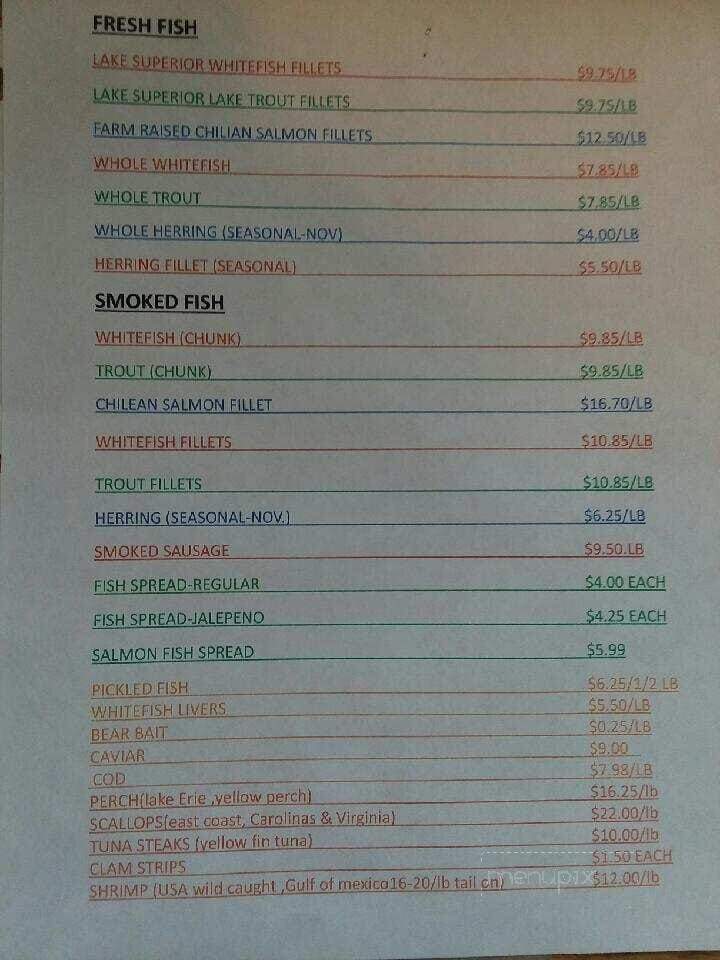 FRESH FISH
LAKE SUPERIOR WHITEFISH FILLETS $9.75/LB
LAKE SUPERIOR LAKE TROUT FILLETS $9.75/LB
FARM RAISED CHILIAN SALMON FILLETS $12.50/LB
WHOLE WHITEFISH $7.85/LB
WHOLE TROUT $7.85/LB
WHOLE HERRING (SEASONAL-NOV) $4.00/LB
HERRING FILLET (SEASONAL) $5.50/LB
SMOKED FISH
WHITEFISH (CHUNK) $9.85/LB
TROUT (CHUNK) $9.85/LB
CHILEAN SALMON FILLET $16.70/LB
WHITEFISH FILLETS $10.85/LB
TROUT FILLETS $10.85/LB
HERRING (SEASONAL-NOV.) $6.25/LB
SMOKED SAUSAGE $9.50.LB
FISH SPREAD-REGULAR $4.00 EACH
FISH SPREAD-JALEPENO $4.25 EACH
SALMON FISH SPREAD $5.99
PICKLED FISH $6.25/1/2 LB
WHITEFISH LIVERS $5.50/LB
BEAR BAIT $0.25/LB
CAVIAR $9.00
COD $7.98/LB
PERCH(lake Erie ,yellow perch) $16.25/lb
SCALLOPS(east coast, Carolinas & Virginia) $22.00/lb
TUNA STEAKS (yellow fin tuna) $10.00/lb
CLAM STRIPS $1.50 EACH
SHRIMP (USA wild caught ,Gulf of mexico16-20/lb tail on) $12.00/lb
menupix